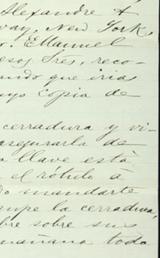 Alexandre &
way, New York,
D. Manuel
esos Tres, reco-
ndo que irias
uyo copia de
cerradura y vi-
asegurarla de
a llave está
el rótulo á
do mandarte
rupe la cerradura,
bre sobre sus
mañana todo